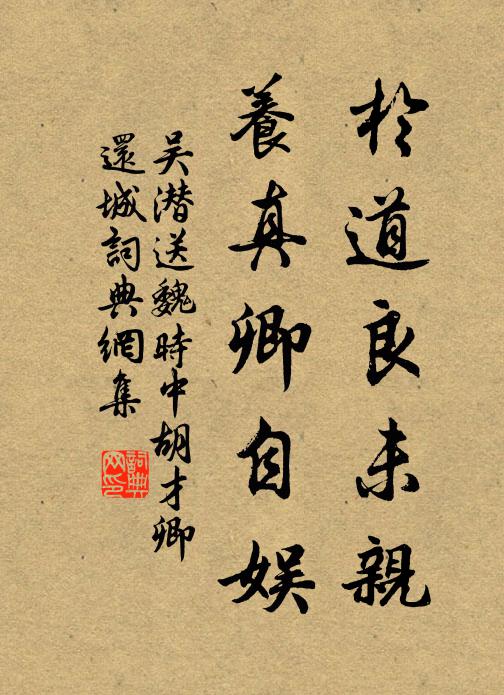 於道良未親
養真卿自娛
吴潛送魏時中胡才卿
還城詞典網集
詞典网印